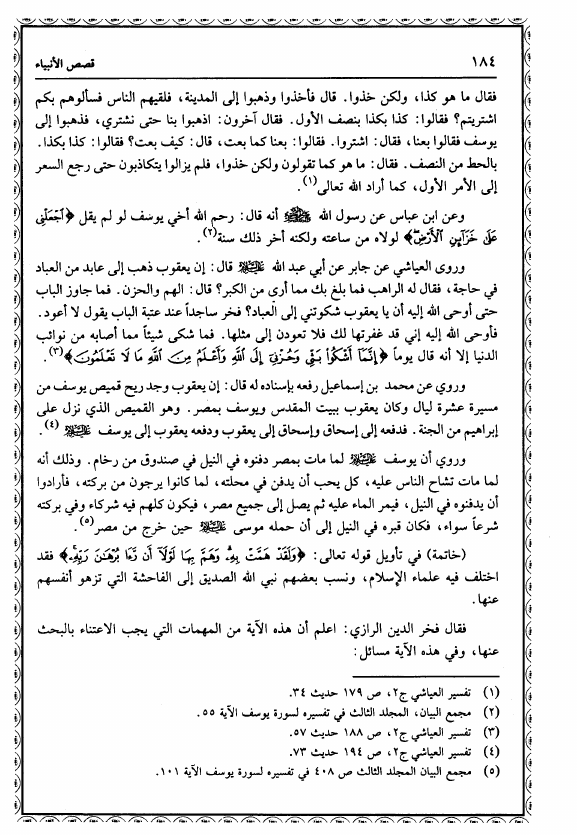 ١٨٤
قصص الأنبياء
فقال ما هو كذا، ولكن خذوا. قال فأخذوا وذهبوا إلى المدينة، فلقيهم الناس فسألوهم بكم
اشتريتم؟ فقالوا: كذا بكذا بنصف الأول. فقال آخرون: اذهبوا بنا حتى نشتري، فذهبوا إلى
يوسف فقالوا بعنا، فقال: اشتروا. فقالوا: بعنا كما بعت، قال: كيف بعت؟ فقالوا: كذا بكذا.
بالحط من النصف. فقال: ما هو كما تقولون ولكن خذوا، فلم يزالوا يتكاذبون حتى رجع السعر
إلى الأمر الأول، كما أراد الله تعالى(١).
وعن ابن عباس عن رسول الله ﷺ أنه قال: رحم الله أخي يوسف لو لم يقل ﴿ٱجْعَلْنِى
عَلَىٰ خَزَآئِنِ ٱلْأَرْضِ﴾ لولاه من ساعته ولكنه أخر ذلك سنة(٢).
وروى العياشي عن جابر عن أبي عبد الله عليه السلام قال: إن يعقوب ذهب إلى عابد من العباد
في حاجة، فقال له الراهب فما بلغ بك مما أرى من الكبر؟ قال: الهم والحزن. فما جاوز الباب
حتى أوحى الله إليه أن يا يعقوب شكوتني إلى العباد؟ فخر ساجداً عند عتبة الباب يقول لا أعود.
فأوحى الله إليه إني قد غفرتها لك فلا تعودن إلى مثلها. فما شكى شيئاً مما أصابه من نوائب
الدنيا إلا أنه قال يوماً ﴿إِنَّمَآ أَشْكُوا۟ بَثِّى وَحُزْنِىٓ إِلَى ٱللَّهِ وَأَعْلَمُ مِنَ ٱللَّهِ مَا لَا تَعْلَمُونَ﴾(٣).
وروي عن محمد بن إسماعيل رفعه بإسناده له قال: إن يعقوب وجد ريح قميص يوسف من
مسيرة عشرة ليال وكان يعقوب ببيت المقدس ويوسف بمصر. وهو القميص الذي نزل على
إبراهيم من الجنة. فدفعه إلى إسحاق وإسحاق إلى يعقوب ودفعه يعقوب إلى يوسف عليه السلام(٤).
وروي أن يوسف عليه السلام لما مات بمصر دفنوه في النيل في صندوق من رخام. وذلك أنه
لما مات تشاح الناس عليه، كل يحب أن يدفن في محلته، لما كانوا يرجون من بركته، فأرادوا
أن يدفنوه في النيل، فيمر الماء عليه ثم يصل إلى جميع مصر، فيكون كلهم فيه شركاء وفي بركته
شرعاً سواء، فكان قبره في النيل إلى أن حمله موسى عليه السلام حين خرج من مصر(٥).
(خاتمة) في تأويل قوله تعالى: ﴿وَلَقَدْ هَمَّتْ بِهِۦ وَهَمَّ بِهَا لَوْلَآ أَن رَّءَا بُرْهَٰنَ رَبِّهِۦ﴾ فقد
اختلف فيه علماء الإسلام، ونسب بعضهم نبي الله الصديق إلى الفاحشة التي تزهو أنفسهم
عنها.
فقال فخر الدين الرازي: اعلم أن هذه الآية من المهمات التي يجب الاعتناء بالبحث
عنها، وفي هذه الآية مسائل:
(١) تفسير العياشي ج٢، ص ١٧٩ حديث ٣٤.
(٢) مجمع البيان، المجلد الثالث في تفسيره لسورة يوسف الآية ٥٥.
(٣) تفسير العياشي ج٢، ص ١٨٨ حديث ٥٧.
(٤) تفسير العياشي ج٢، ص ١٩٤ حديث ٧٣.
(٥) مجمع البيان المجلد الثالث ص ٤٠٨ في تفسيره لسورة يوسف الآية ١٠١.